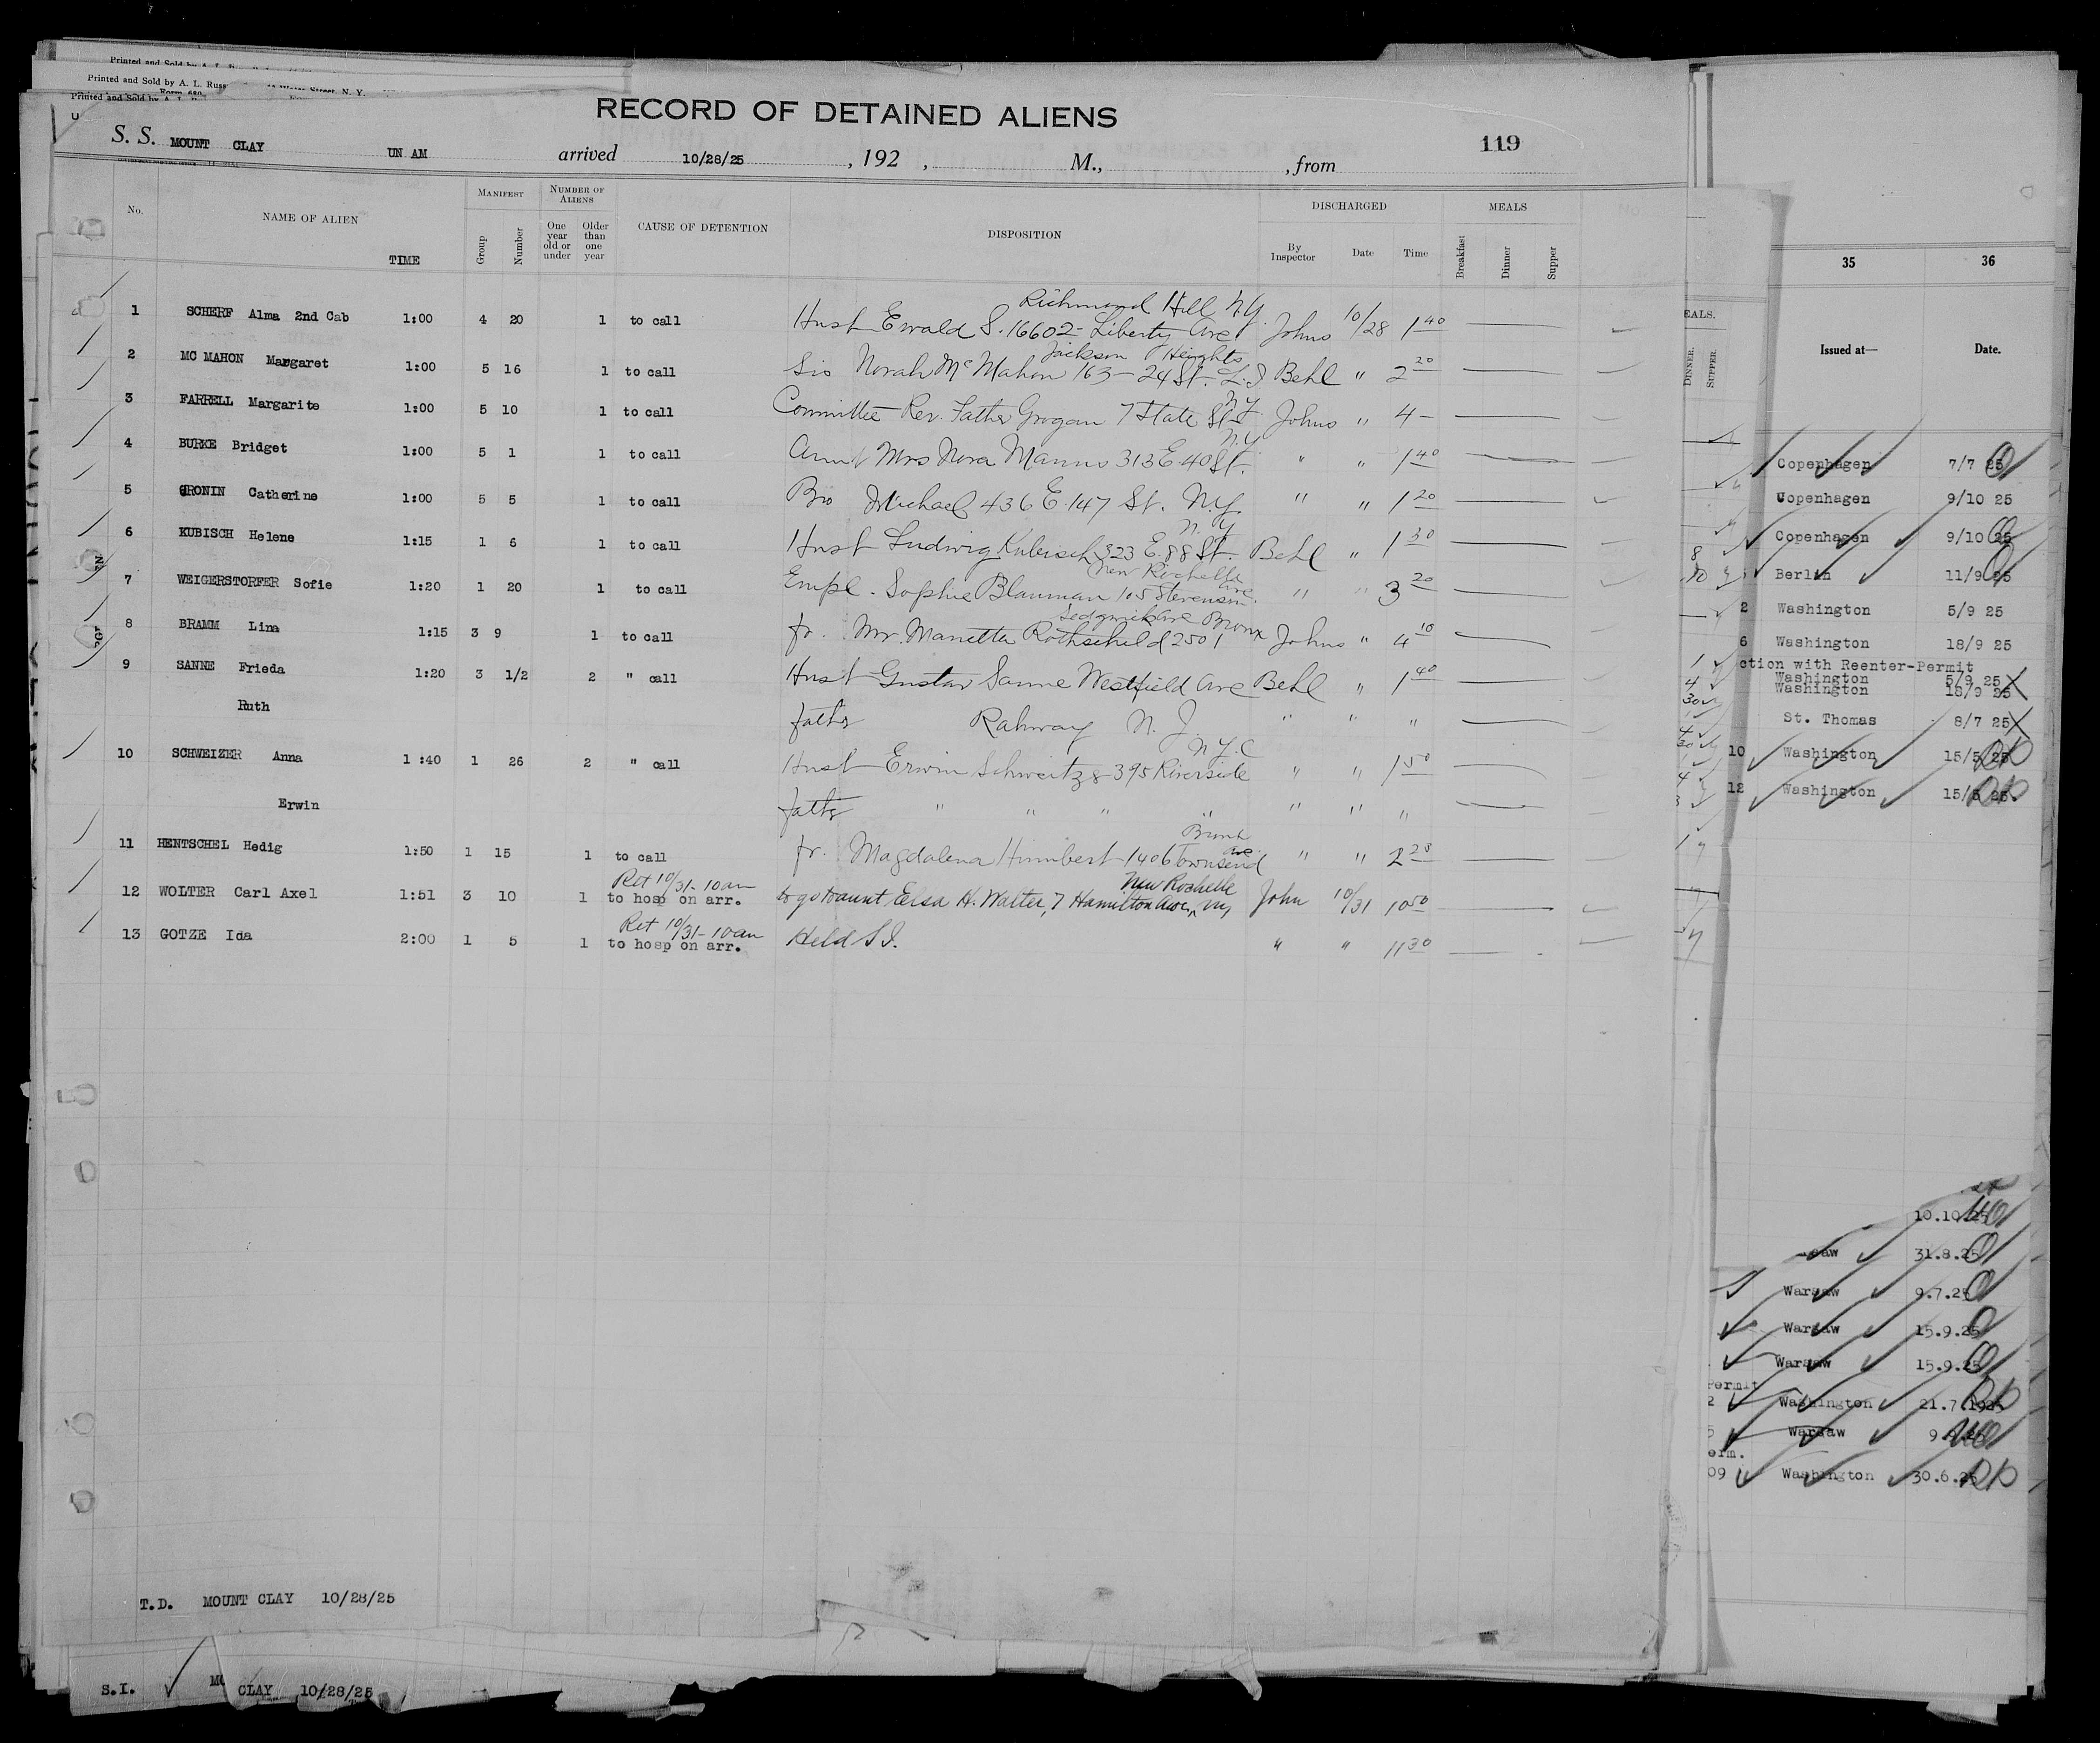 Printed and Sold by A. L. Russ
Water Street, N. Y.
RECORD OF DETAINED ALIENS
119
S. S. MOUNT CLAY UN AM arrived 10/28/25, 192 , M., , from
No. NAME OF ALIEN TIME MANIFEST Group Number NUMBER OF ALIENS One year old or under Older than one year CAUSE OF DETENTION DISPOSITION DISCHARGED By Inspector Date Time MEALS Breakfast Dinner Supper
Richmond Hill N.Y.
1 SCHERF Alma 2nd Cab 1:00 4 20 1 to call Husb Ewald S. 16602- Liberty Ave Johns 10/28 1 40
Jackson Heights
2 MC MAHON Margaret 1:00 5 16 1 to call Sis Norah McMahon 163-24 St. L.I Behl " 2 20
N.Y.
3 FARRELL Margarite 1:00 5 10 1 to call Committee Rev. Father Grogan 7 State St Johns " 4 -
N.Y
4 BURKE Bridget 1:00 5 1 1 to call Aunt Mrs Nora Manns 313 E. 40 St. " " 1 40
5 CRONIN Catherine 1:00 5 5 1 to call Bro Michael 436 E. 147 St. N.Y. " " 1 20
N.Y
6 KUBISCH Helene 1:15 1 6 1 to call Husb Ludwig Kubisch 323 E. 88 St. Behl " 1 30
New Rochelle
7 WEIGERSTORFER Sofie 1:20 1 20 1 to call Empl. Sophie Blauman 105 Stevenson Ave. " " 3 20
Sedgwick Ave Bronx
8 BRAMM Lina 1:15 3 9 1 to call fr. Mr. Manetta Rothschild 2501 Johns " 4 10
9 SANNE Frieda 1:20 3 1/2 2 " call Husb Gustav Sanne Westfield Ave Behl " 1 40
Ruth father Rahway N. J. " " "
N.Y.C
10 SCHWEIZER Anna 1:40 1 26 2 " call Husb Erwin Schweitzer 395 Riverside " " 1 50
Erwin father " " " " " " "
Bronx
11 HENTSCHEL Hedig 1:50 1 15 1 to call fr. Magdalena Humbert 1406 Townsend Ave. " " 2 20
Ret 10/31-10am New Rochelle
12 WOLTER Carl Axel 1:51 3 10 1 to hosp on arr. to go to aunt Elsa H. Walter, 7 Hamilton Ave, NY John 10/31 10 50
Ret 10/31-10am
13 GOTZE Ida 2:00 1 5 1 to hosp on arr. Held S I. " " 11 30
T.D. MOUNT CLAY 10/28/25
S.I. CLAY 10/28/25
EALS.
DINNER. SUPPER.
35 36
Issued at— Date.
Copenhagen 7/7 25
Copenhagen 9/10 25
Copenhagen 9/10 25
Berlin 11/9 25
2 Washington 5/9 25
6 Washington 18/9 25
ction with Reenter-Permit
Washington 5/9 25
Washington 18/9 25
St. Thomas 8/7 25
10 Washington 15/5 25
12 Washington 15/5 25.
10.10.25
31.8.25
Warsaw 9.7.25
Warsaw 15.9.25
Warsaw 15.9.25
Permit
2 Washington 21.7.1925
5 Warsaw
erm.
09 Washington 30.6.25